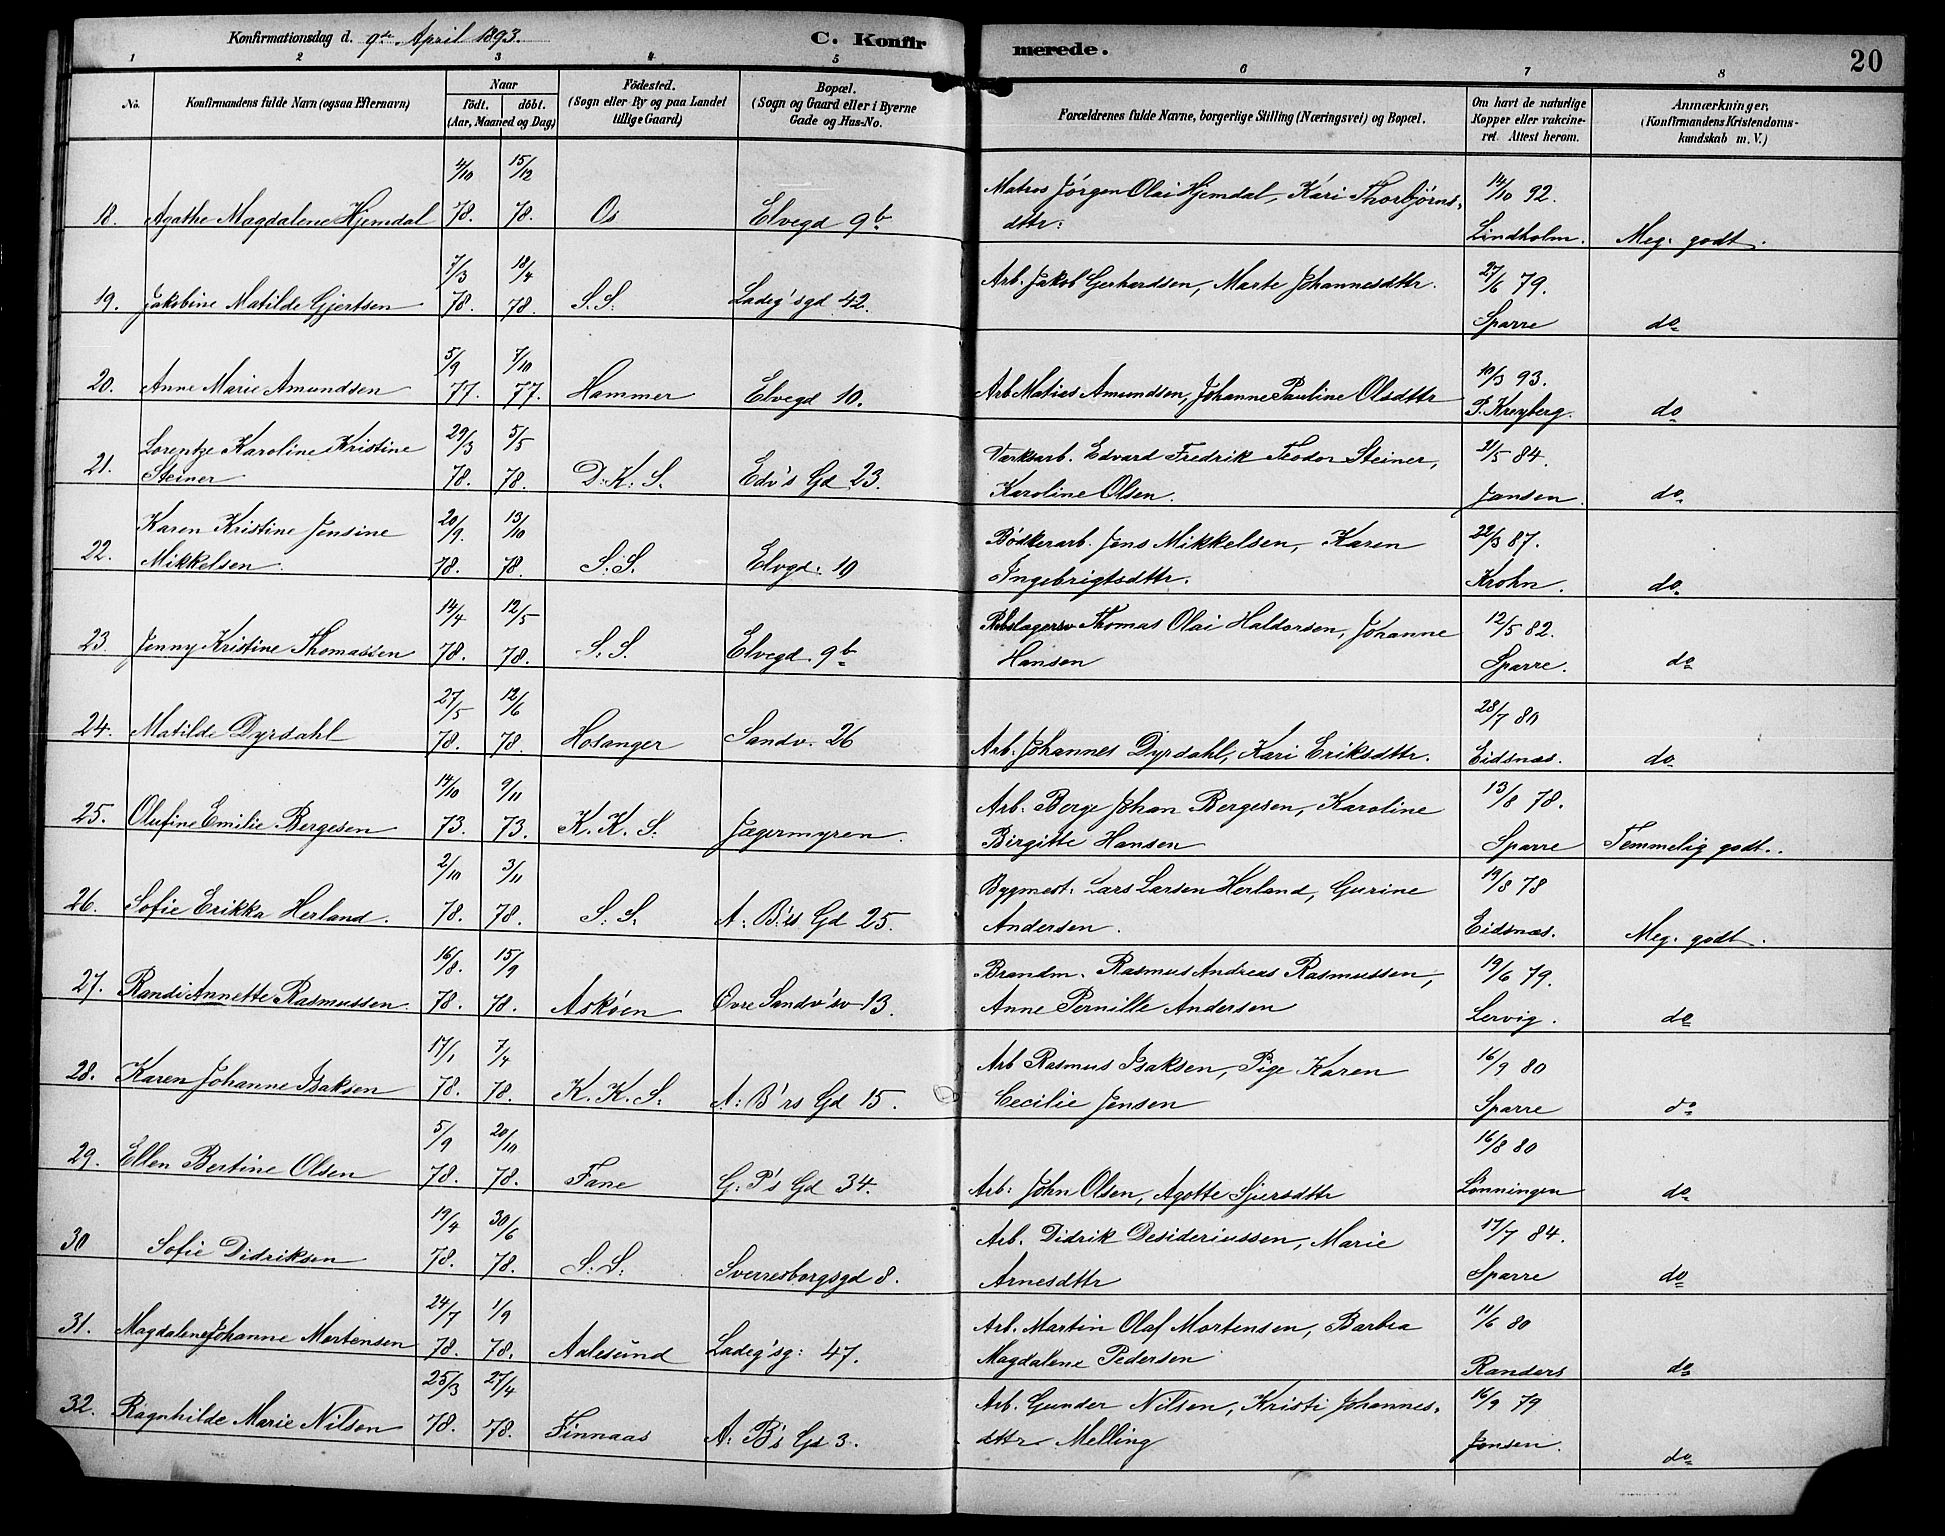 Konfirmationsdag d. 9de April 1893. C. Konfirmerede. 20
1 2 3 4 5 6 7 8
No. Konfirmandens fulde Navn (ogsaa Efternavn) Naar födt. döbt. (Aar, Maaned og Dag) Födested. (Sogn eller By og paa Landet tillige Gaard) Bopæl. (Sogn og Gaard eller i Byerne Gade og Hus-No. Forældrenes fulde Navne, borgerlige Stilling (Næringsvei) og Bopæl. Om havt de naturlige Kopper eller vakcineret. Attest herom. Anmærkninger, (Konfirmandens Kristendomskundskab m. V.)
4/10 15/12 Matros Jørgen Olai Hjemdal, Kari Thorbjørns- 14/10 92.
18. Agathe Magdalene Hjemdal 78. 78. Os Elvegd 9b dttr: Lindholm. Meg. godt.
7/3 18/4 Arb. Jakob Gerhardsen, Marte Johannesdttr. 27/6 79.
19. Jakobine Matilde Gjertsen 78. 78. S.S. Ladeg'sgd 42. Sparre do
5/9 7/10 10/3 93.
20. Anne Marie Amundsen 77. 77. Hammer Elvegd 10. Arb Matias Amundsen, Johanne Pauline Olsdttr P. Kreyberg. do
Lorentze Karoline Kristine 29/3 5/5 Værksarb. Edvard Fredrik Teodor Steiner, 21/5 84.
21. Steiner 78. 78. D.K.S. Edv's Gd 23. Karoline Olsen. Jansen. do
Karen Kristine Jensine 20/9. 13/10 Bødkerarb. Jens Mikkelsen, Karen 22/3 87.
22. Mikkelsen. 78. 78. S.S. Elvgd. 10 Ingebrigtsdttr. Krohn. do
14/4 12/5 Thomas Olai Haldorsen, Johanne 12/5 82.
23. Jenny Kristine Thomassen 78. 78. S.S. Elvegd. 9b Hansen Sparre. do
27/5 12/6 28/7 80
24. Matilde Dyrdahl 78. 78. Hosanger Sandv. 26 Arb. Johannes Dyrdahl, Kari Eriksdttr. Eidsnæs. do
14/10 9/11 Arb. Berge Johan Bergesen, Karoline 13/8 78.
25. Olufine Emilie Bergesen 73. 73. K.K.S. Jægermyren. Birgitte Hansen Sparre Temmelig godt.
2/10 3/11 Bygmest. Lars Larsen Herland, Gurine 19/8 78
26. Sofie Erikka Herland. 78. 78. S.S. A: B:'rs Gd 25. Andersen. Eidsnæs. Meg. godt.
16/8. 15/9 Brandm. Rasmus Andreas Rasmussen, 19/6 79.
27. Randi Annette Rasmussen. 78. 78. Askøen Øvre Sandv'sv 13. Anne Pernille Andersen Lervig. do
17/1 7/4 Arb Rasmus Isaksen, Pige Karen 16/9 80
28. Karen Johanne Isaksen 78. 78. K.K.S. A: B'rs Gd 15. Cecilie Jensen Sparre do
5/9 20/10 16/8 80
29. Ellen Bertine Olsen 78. 78. Fane G: P's Gd 34. Arb: John Olsen, Agotte Sjursdttr Lønningen do
19/4 30/6 Arb. Didrik Desideriussen, Marie 17/7 84.
30 Sofie Didriksen 78. 78. S.S. Sverresborgsgd 8. Arnesdttr Sparre do
24/7 1/9 Arb. Martin Olaf Mortensen, Barbra 11/6 80
31. Magdalene Johanne Mortensen 78. 78. Aalesund Ladeg'sg: 47. Magdalene Pedersen Randers do
25/3 27/4 Arb. Gunder Nilsen, Kristi Johannes- 16/9 79
32. Ragnhilde Marie Nilsen 78. 78. Finnaas A: B's Gd 3. dttr Melling Jensen. do